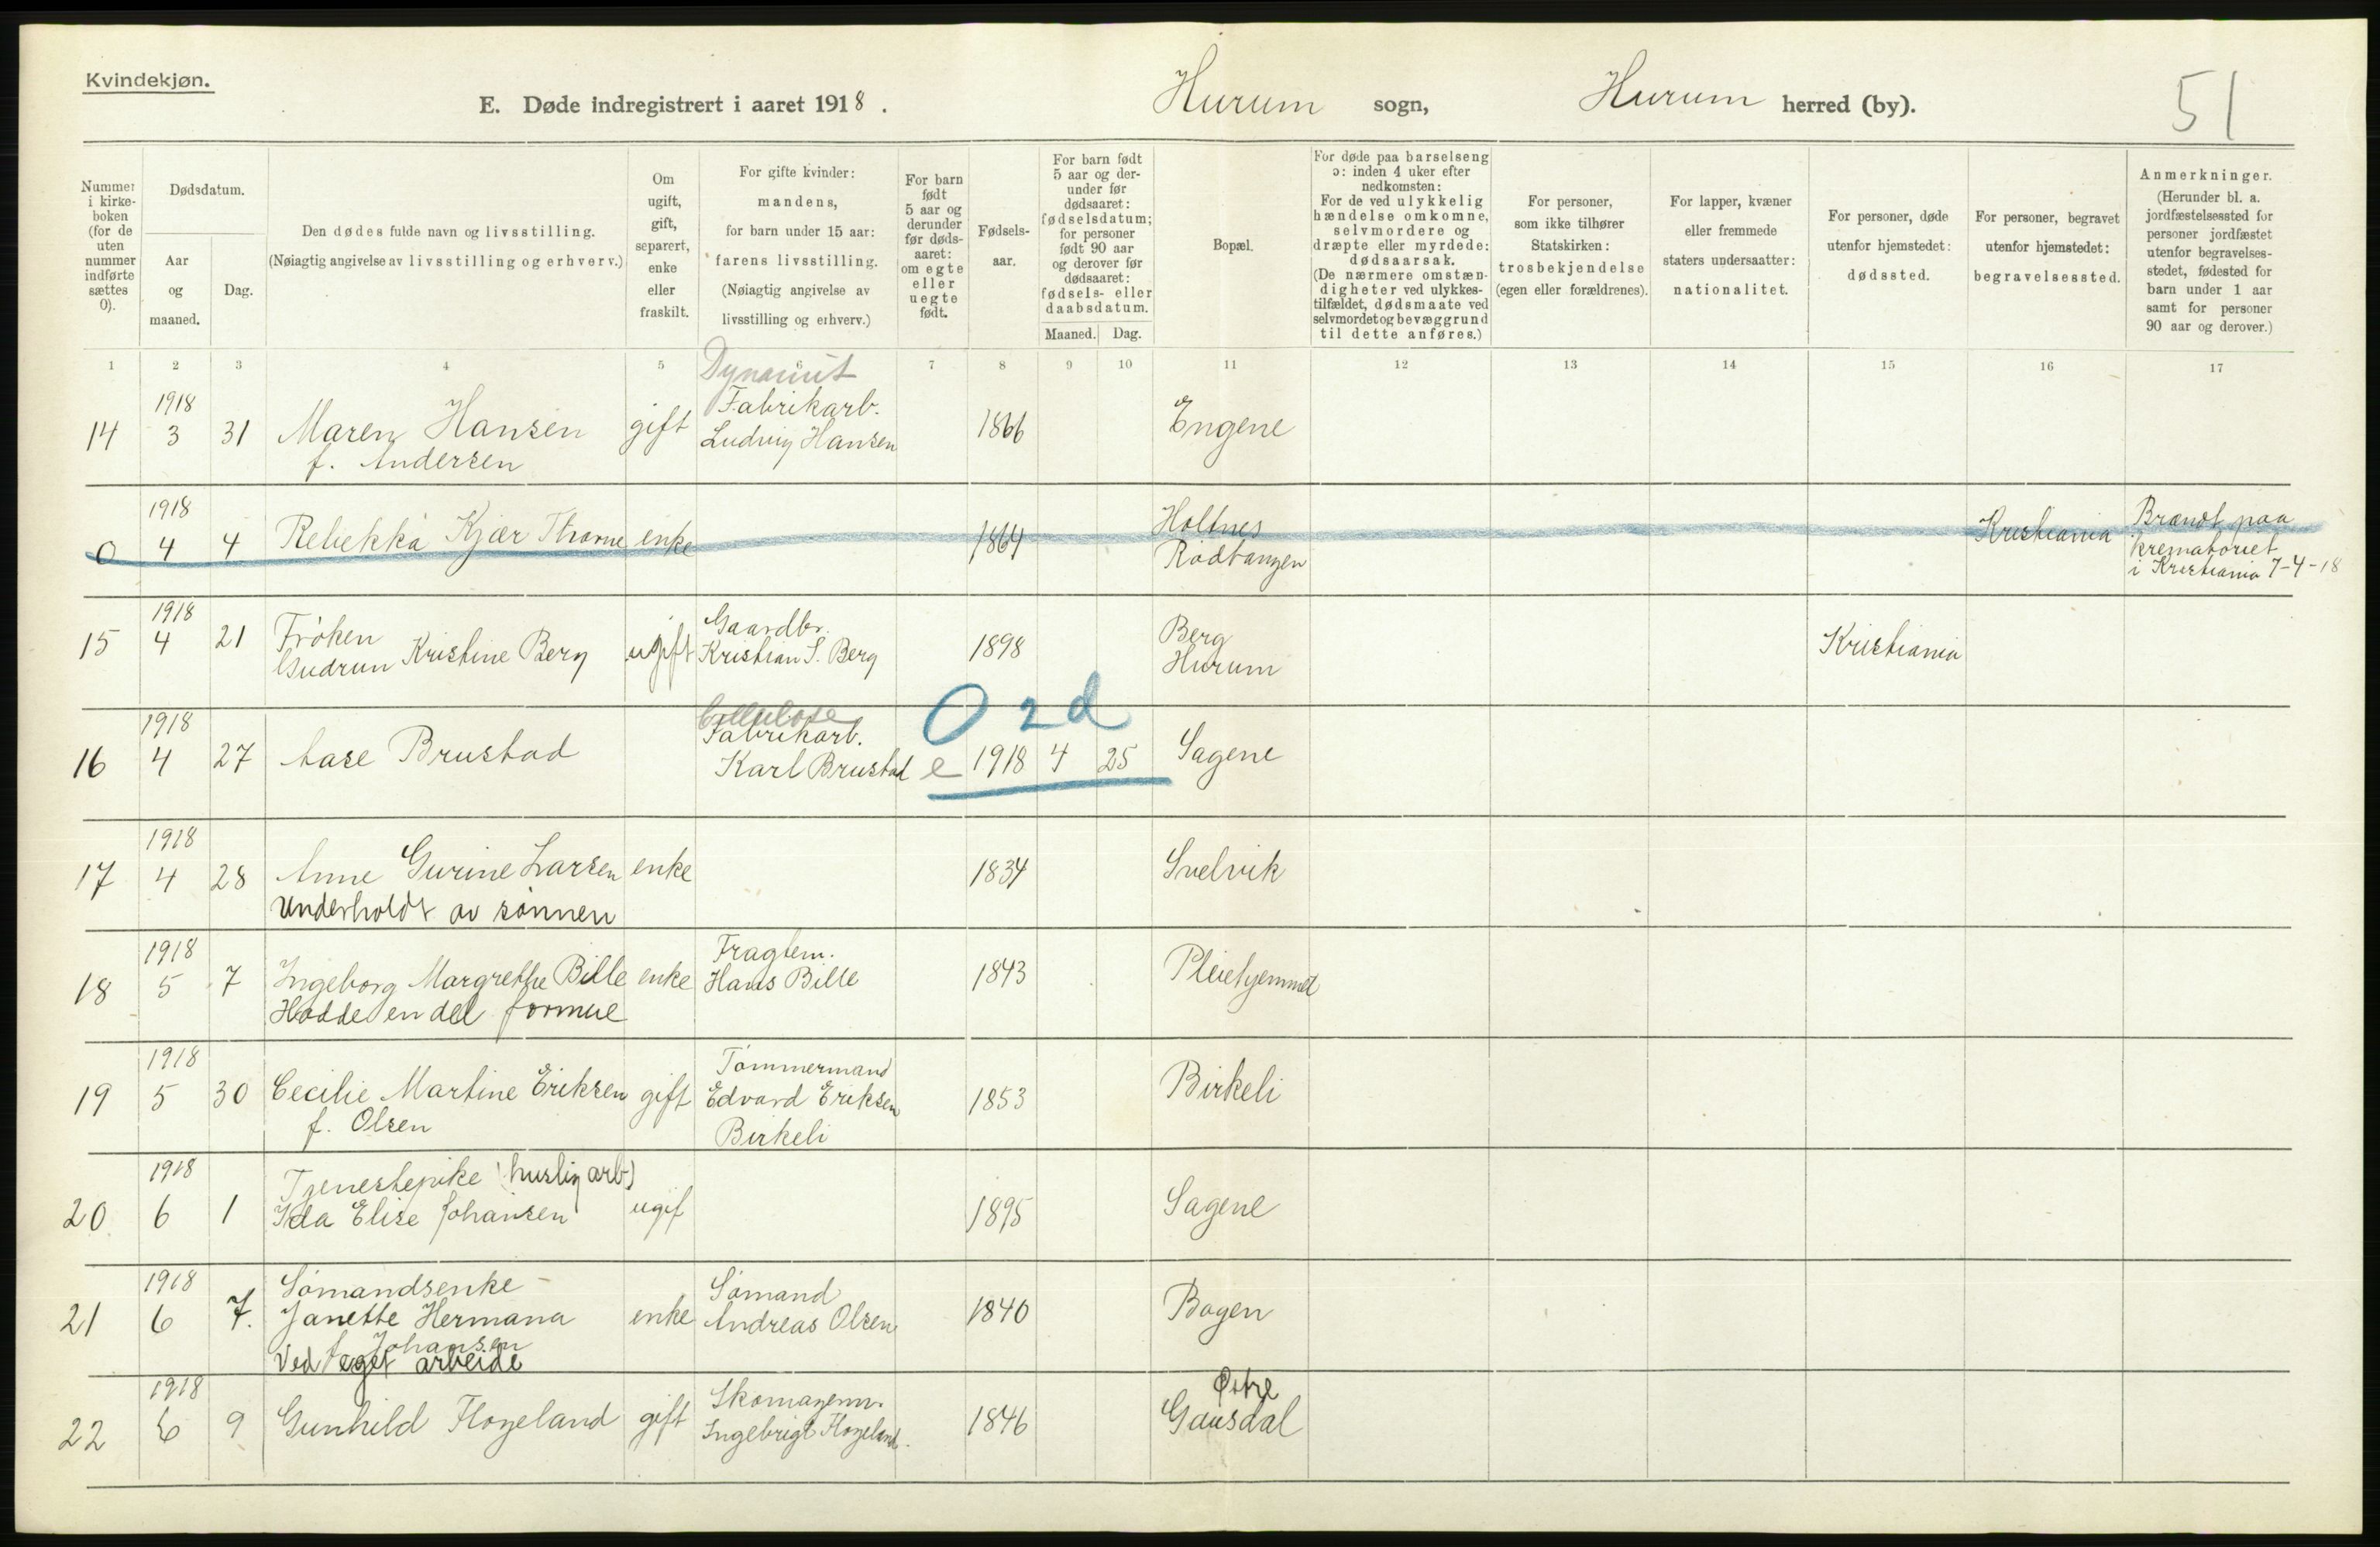 Kvindekjøn.
E. Døde indregistrert i aaret 1918.
Hurum sogn,
Hurum herred (by).
51
Nummer i kirkeboken (for de uten nummer indførte sættes 0).
Dødsdatum.
Aar og maaned.
Dag.
Den dødes fulde navn og livsstilling.
(Nøiagtig angivelse av livsstilling og erhverv.)
Om ugift, gift, separert, enke eller fraskilt.
For gifte kvinder: mandens,
for barn under 15 aar: farens livsstilling.
(Nøiagtig angivelse av livsstilling og erhverv.)
For barn født 5 aar og derunder før dødsaaret: om egte eller uegte født.
Fødselsaar.
For barn født 5 aar og derunder før dødsaaret: fødselsdatum; for personer født 90 aar og derover før dødsaaret: fødsels- eller daabsdatum.
Maaned. Dag.
Bopæl.
For døde paa barselseng ɔ: inden 4 uker efter nedkomsten:
For de ved ulykkelig hændelse omkomne, selvmordere og dræpte eller myrdede: dødsaarsak.
(De nærmere omstændigheter ved ulykkestilfældet, dødsmaate ved selvmordet og bevæggrund til dette anføres.)
For personer, som ikke tilhører Statskirken: trosbekjendelse (egen eller forældrenes).
For lapper, kvæner eller fremmede staters undersaatter: nationalitet.
For personer, døde utenfor hjemstedet: dødssted.
For personer, begravet utenfor hjemstedet: begravelsessted.
Anmerkninger.
(Herunder bl. a. jordfæstelsessted for personer jordfæstet utenfor begravelsesstedet, fødested for barn under 1 aar samt for personer 90 aar og derover.)
1 2 3 4 5 6 7 8 9 10 11 12 13 14 15 16 17
Dynamit
1918 Fabrikarb.
14 3 31 Maren Hansen gift Ludvig Hansen 1866 Engene
f. Andersen
1918 Holtnes Brændt paa
0 4 4 Rebekka Kjær Thorne enke 1864 Rødtangen Kristiania krematoriet
i Kristiania 7-4-18
1918 Frøken Gaardbr. Berg
15 4 21 Gudrun Kristine Berg ugift Kristian S. Berg 1898 Hurum Kristiania
Cellulose 0 2 d
1918 Fabrikarb.
16 4 27 Aase Brustad Karl Brustad e 1918 4 25 Sagene
1918
17 4 28 Anne Gurine Larsen enke 1834 Svelvik
Underholdt av sønnen
1918 Fragtem.
18 5 7 Ingeborg Margrethe Bille enke Hans Bille 1843 Pleiehjemmet
Hadde en del formue
1918 Tømmermand
19 5 30 Cecilie Martine Eriksen gift Edvard Eriksen 1853 Birkeli
f. Olsen Birkeli
1918 Tjenestepike (huslig arb)
20 6 1 Ida Elise Johansen ugif 1895 Sagene
1918 Sømandsenke - Sømand
21 6 7. Janette Hermana enke Andreas Olsen 1840 Bogen
f. Johansen
Ved eget arbeide
1918 Skomagerm. Østre
22 6 9 Gunhild Flogeland gift Ingebrigt Flogeland. 1846 Gausdal